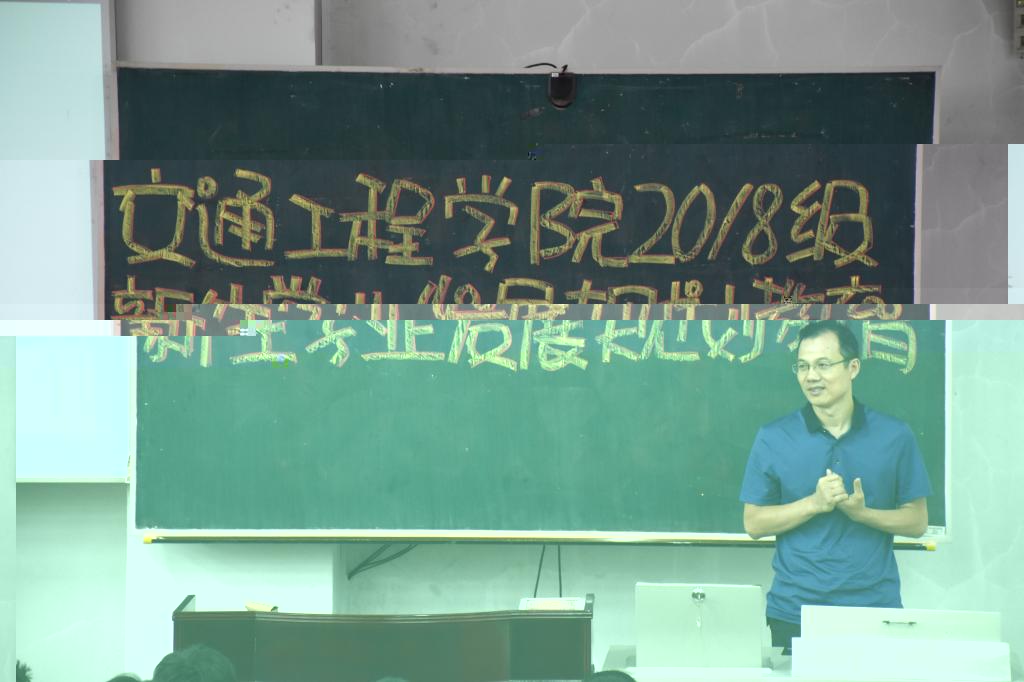 交通工程学院2018级
新生学业发展规划教育